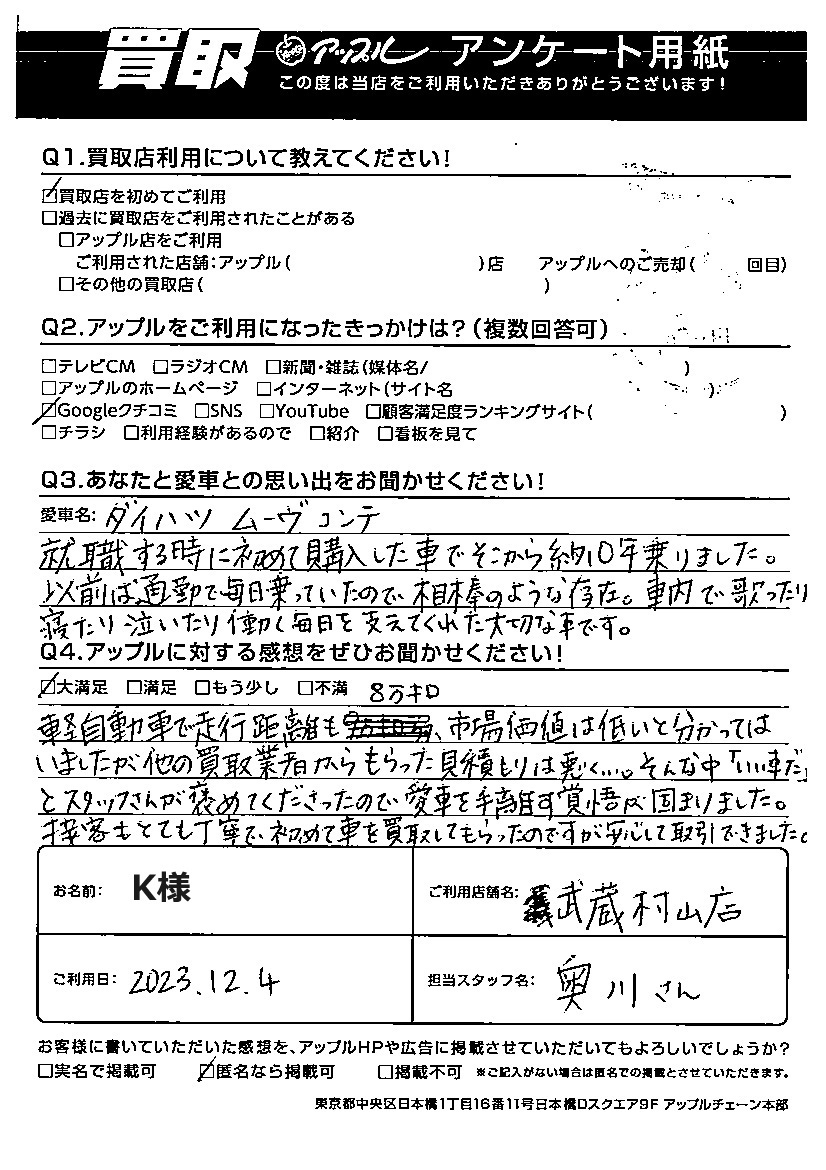 買取 アップル アンケート用紙
この度は当店をご利用いただきありがとうございます!
Q1.買取店利用について教えてください!
☑買取店を初めてご利用
□過去に買取店をご利用されたことがある
□アップル店をご利用
ご利用された店舗:アップル( )店 アップルへのご売却( 回目)
□その他の買取店( )
Q2.アップルをご利用になったきっかけは?(複数回答可)
□テレビCM □ラジオCM □新聞・雑誌(媒体名/ )
□アップルのホームページ □インターネット(サイト名 )
☑Googleクチコミ □SNS □YouTube □顧客満足度ランキングサイト( )
□チラシ □利用経験があるので □紹介 □看板を見て
Q3.あなたと愛車との思い出をお聞かせください!
愛車名: ダイハツ ムーヴ コンテ
就職する時に初めて購入した車でそこから約10年乗りました。
以前は通勤で毎日乗っていたので相棒のような存在。車内で歌ったり
寝たり泣いたり働く毎日を支えてくれた大切な車です。
Q4.アップルに対する感想をぜひお聞かせください!
☑大満足 □満足 □もう少し □不満 8万キロ
軽自動車で走行距離も 、市場価値は低いと分かっては
いましたが他の買取業者からもらった見積もりは悪く…。そんな中「いい車だ」
とスタッフさんが褒めてくださったので愛車を手離す覚悟が固まりました。
接客もとても丁寧で、初めて車を買取してもらったのですが安心して取引できました。
お名前: K様 ご利用店舗名: 武蔵村山店
ご利用日: 2023.12.4 担当スタッフ名: 奥川さん
お客様に書いていただいた感想を、アップルHPや広告に掲載させていただいてもよろしいでしょうか?
□実名で掲載可 ☑匿名なら掲載可 □掲載不可 ※ご記入がない場合は匿名での掲載とさせていただきます。
東京都中央区日本橋1丁目16番11号日本橋Dスクエア9F アップルチェーン本部